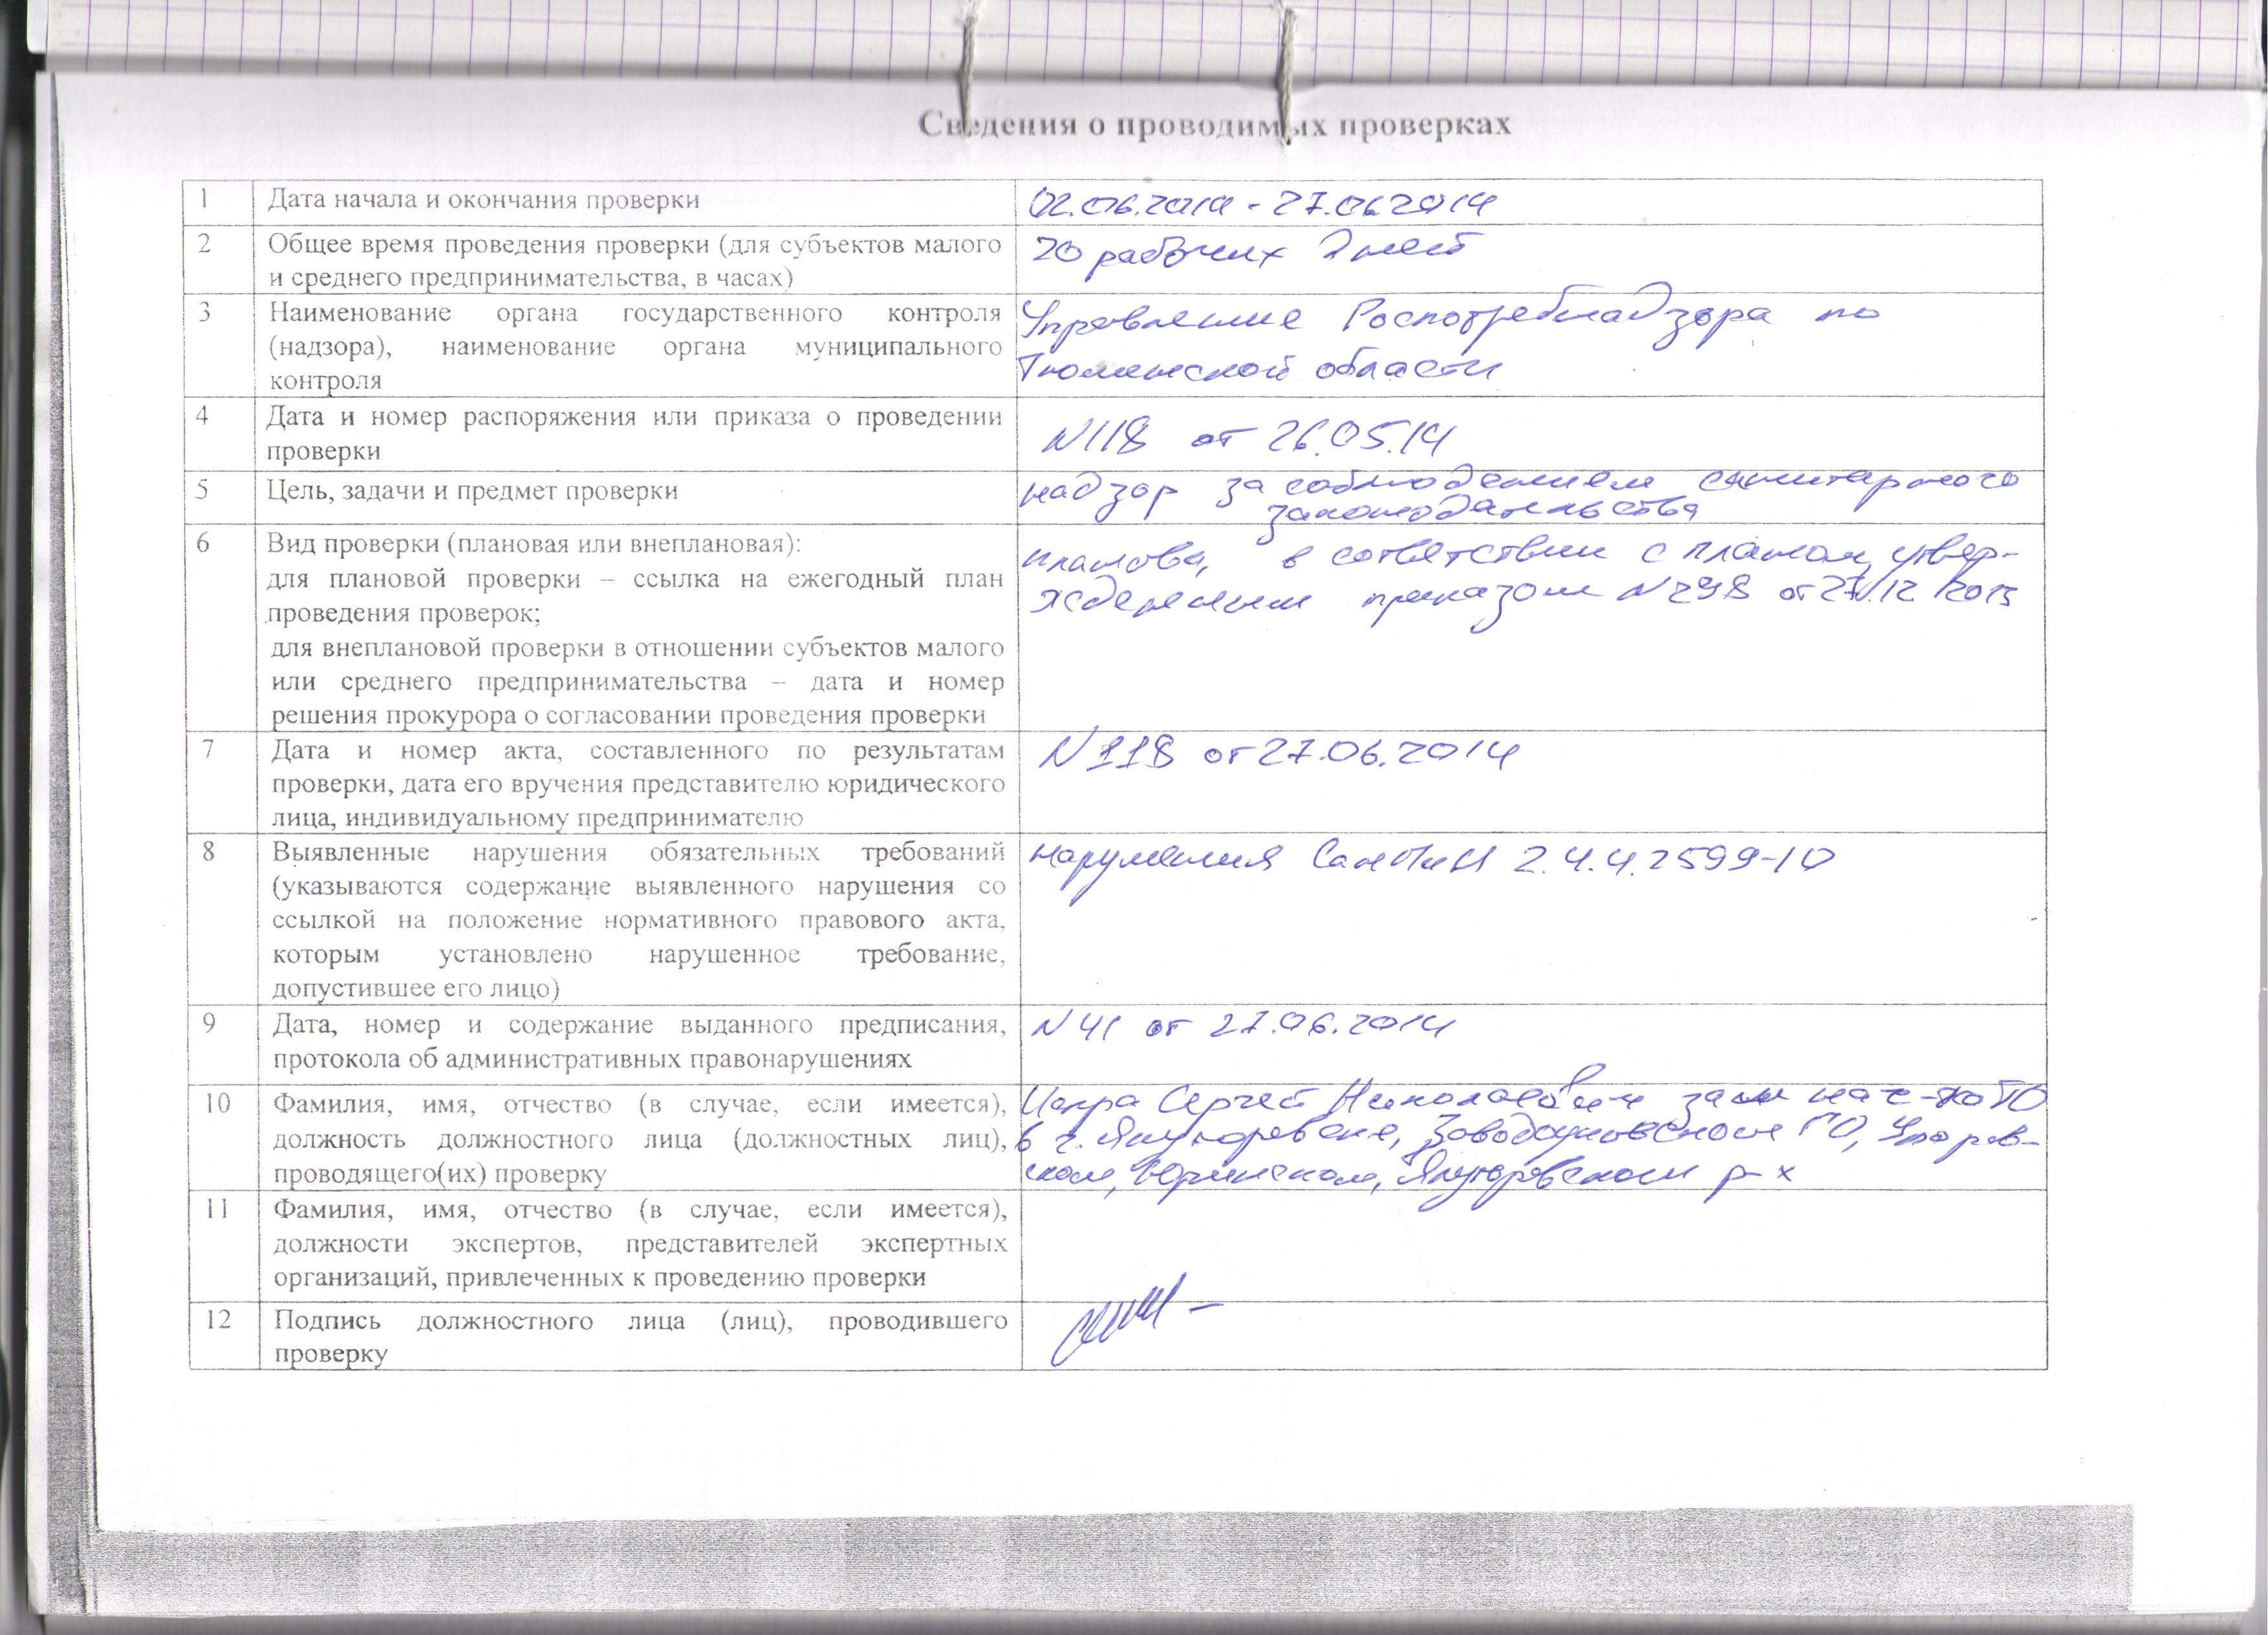 Сведения о проводимых проверках
1 Дата начала и окончания проверки 02.06.2014 - 27.06.2014
2 Общее время проведения проверки (для субъектов малого
и среднего предпринимательства, в часах)
20 рабочих дней
3 Наименование органа государственного контроля
(надзора), наименование органа муниципального
контроля
Управление Роспотребнадзора по
Тюменской области
4 Дата и номер распоряжения или приказа о проведении
проверки
N118 от 26.05.14
5 Цель, задачи и предмет проверки
надзор за соблюдением санитарного
законодательства
6 Вид проверки (плановая или внеплановая):
для плановой проверки – ссылка на ежегодный план
проведения проверок;
для внеплановой проверки в отношении субъектов малого
или среднего предпринимательства – дата и номер
решения прокурора о согласовании проведения проверки
в сответствии с планом, утвер-
жденным приказом N298 от 27.12 2013
7 Дата и номер акта, составленного по результатам
проверки, дата его вручения представителю юридического
лица, индивидуальному предпринимателю
N118 от 27.06.2014
8 Выявленные нарушения обязательных требований
(указываются содержание выявленного нарушения со
ссылкой на положение нормативного правового акта,
которым установлено нарушенное требование,
допустившее его лицо)
нарушения СанПиН 2.4.4.2599-10
9 Дата, номер и содержание выданного предписания,
протокола об административных правонарушениях
N41 от 27.06.2014
10 Фамилия, имя, отчество (в случае, если имеется),
должность должностного лица (должностных лиц),
проводящего(их) проверку
Сергей Николаевич зам нач-ка ТО
в г. Ялуторовске, Заводоуковском ГО, Упоров-
ском, Юргинском, Ялуторовском р-х
11 Фамилия, имя, отчество (в случае, если имеется),
должности экспертов, представителей экспертных
организаций, привлеченных к проведению проверки
12 Подпись должностного лица (лиц), проводившего
проверку